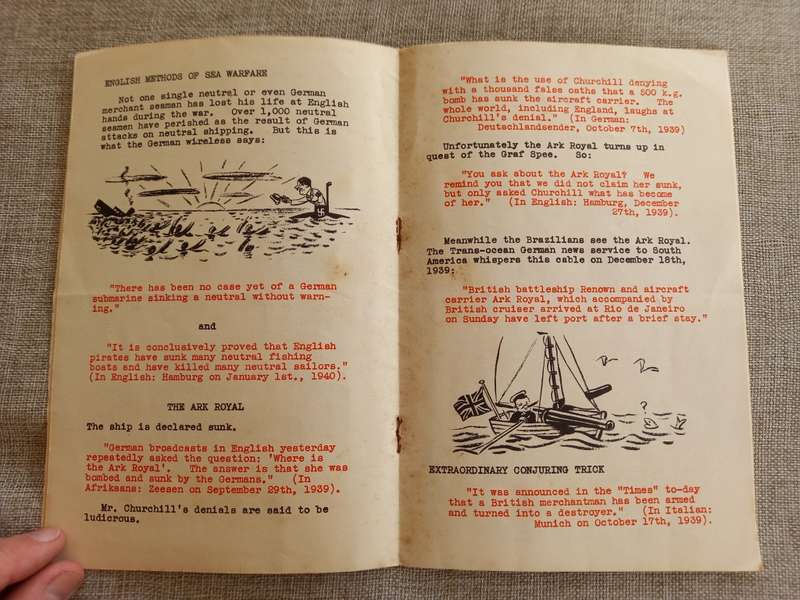 ENGLISH METHODS OF SEA WARFARE
Not one single neutral or even German
merchant seaman has lost his life at English
hands during the war. Over 1,000 neutral
seamen have perished as the result of German
attacks on neutral shipping. But this is
what the German wireless says:
"There has been no case yet of a German
submarine sinking a neutral without warn-
ing."
and
"It is conclusively proved that English
pirates have sunk many neutral fishing
boats and have killed many neutral sailors."
(In English: Hamburg on January 1st., 1940).
THE ARK ROYAL
The ship is declared sunk.
"German broadcasts in English yesterday
repeatedly asked the question: 'Where is
the Ark Royal'. The answer is that she was
bombed and sunk by the Germans." (In
Afrikaans: Zeesen on September 29th, 1939).
Mr. Churchill's denials are said to be
ludicrous.
"What is the use of Churchill denying
with a thousand false oaths that a 500 k.g.
bomb has sunk the aircraft carrier. The
whole world, including England, laughs at
Churchill's denial." (In German:
Deutschlandsender, October 7th, 1939)
Unfortunately the Ark Royal turns up in
quest of the Graf Spee. So:
"You ask about the Ark Royal? We
remind you that we did not claim her sunk,
but only asked Churchill what has become
of her." (In English: Hamburg, December
27th, 1939).
Meanwhile the Brazilians see the Ark Royal.
The Trans-ocean German news service to South
America whispers this cable on December 18th,
1939:
"British battleship Renown and aircraft
carrier Ark Royal, which accompanied by
British cruiser arrived at Rio de Janeiro
on Sunday have left port after a brief stay."
EXTRAORDINARY CONJURING TRICK
"It was announced in the "Times" to-day
that a British merchantman has been armed
and turned into a destroyer." (In Italian:
Munich on October 17th, 1939).